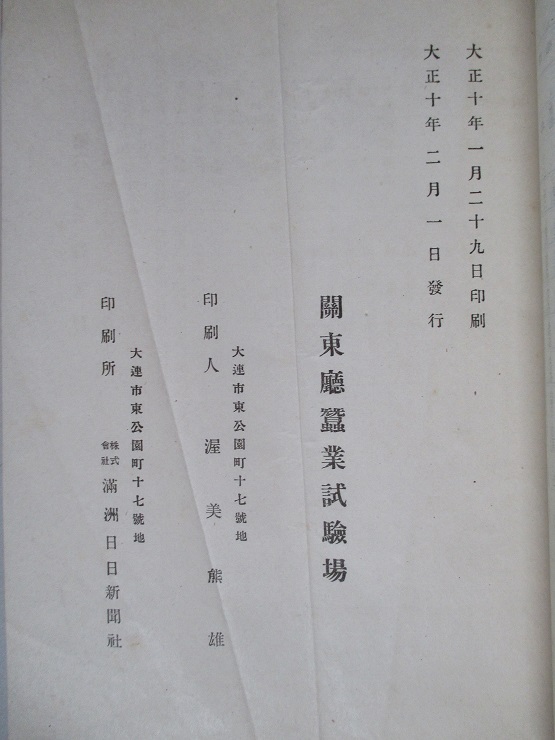 大正十年一月二十九日印刷
大正十年二月一日發行
關東廳蠶業試驗場
大連市東公園町十七號地
印刷人 渥美熊雄
大連市東公園町十七號地
印刷所 株式會社 滿洲日日新聞社